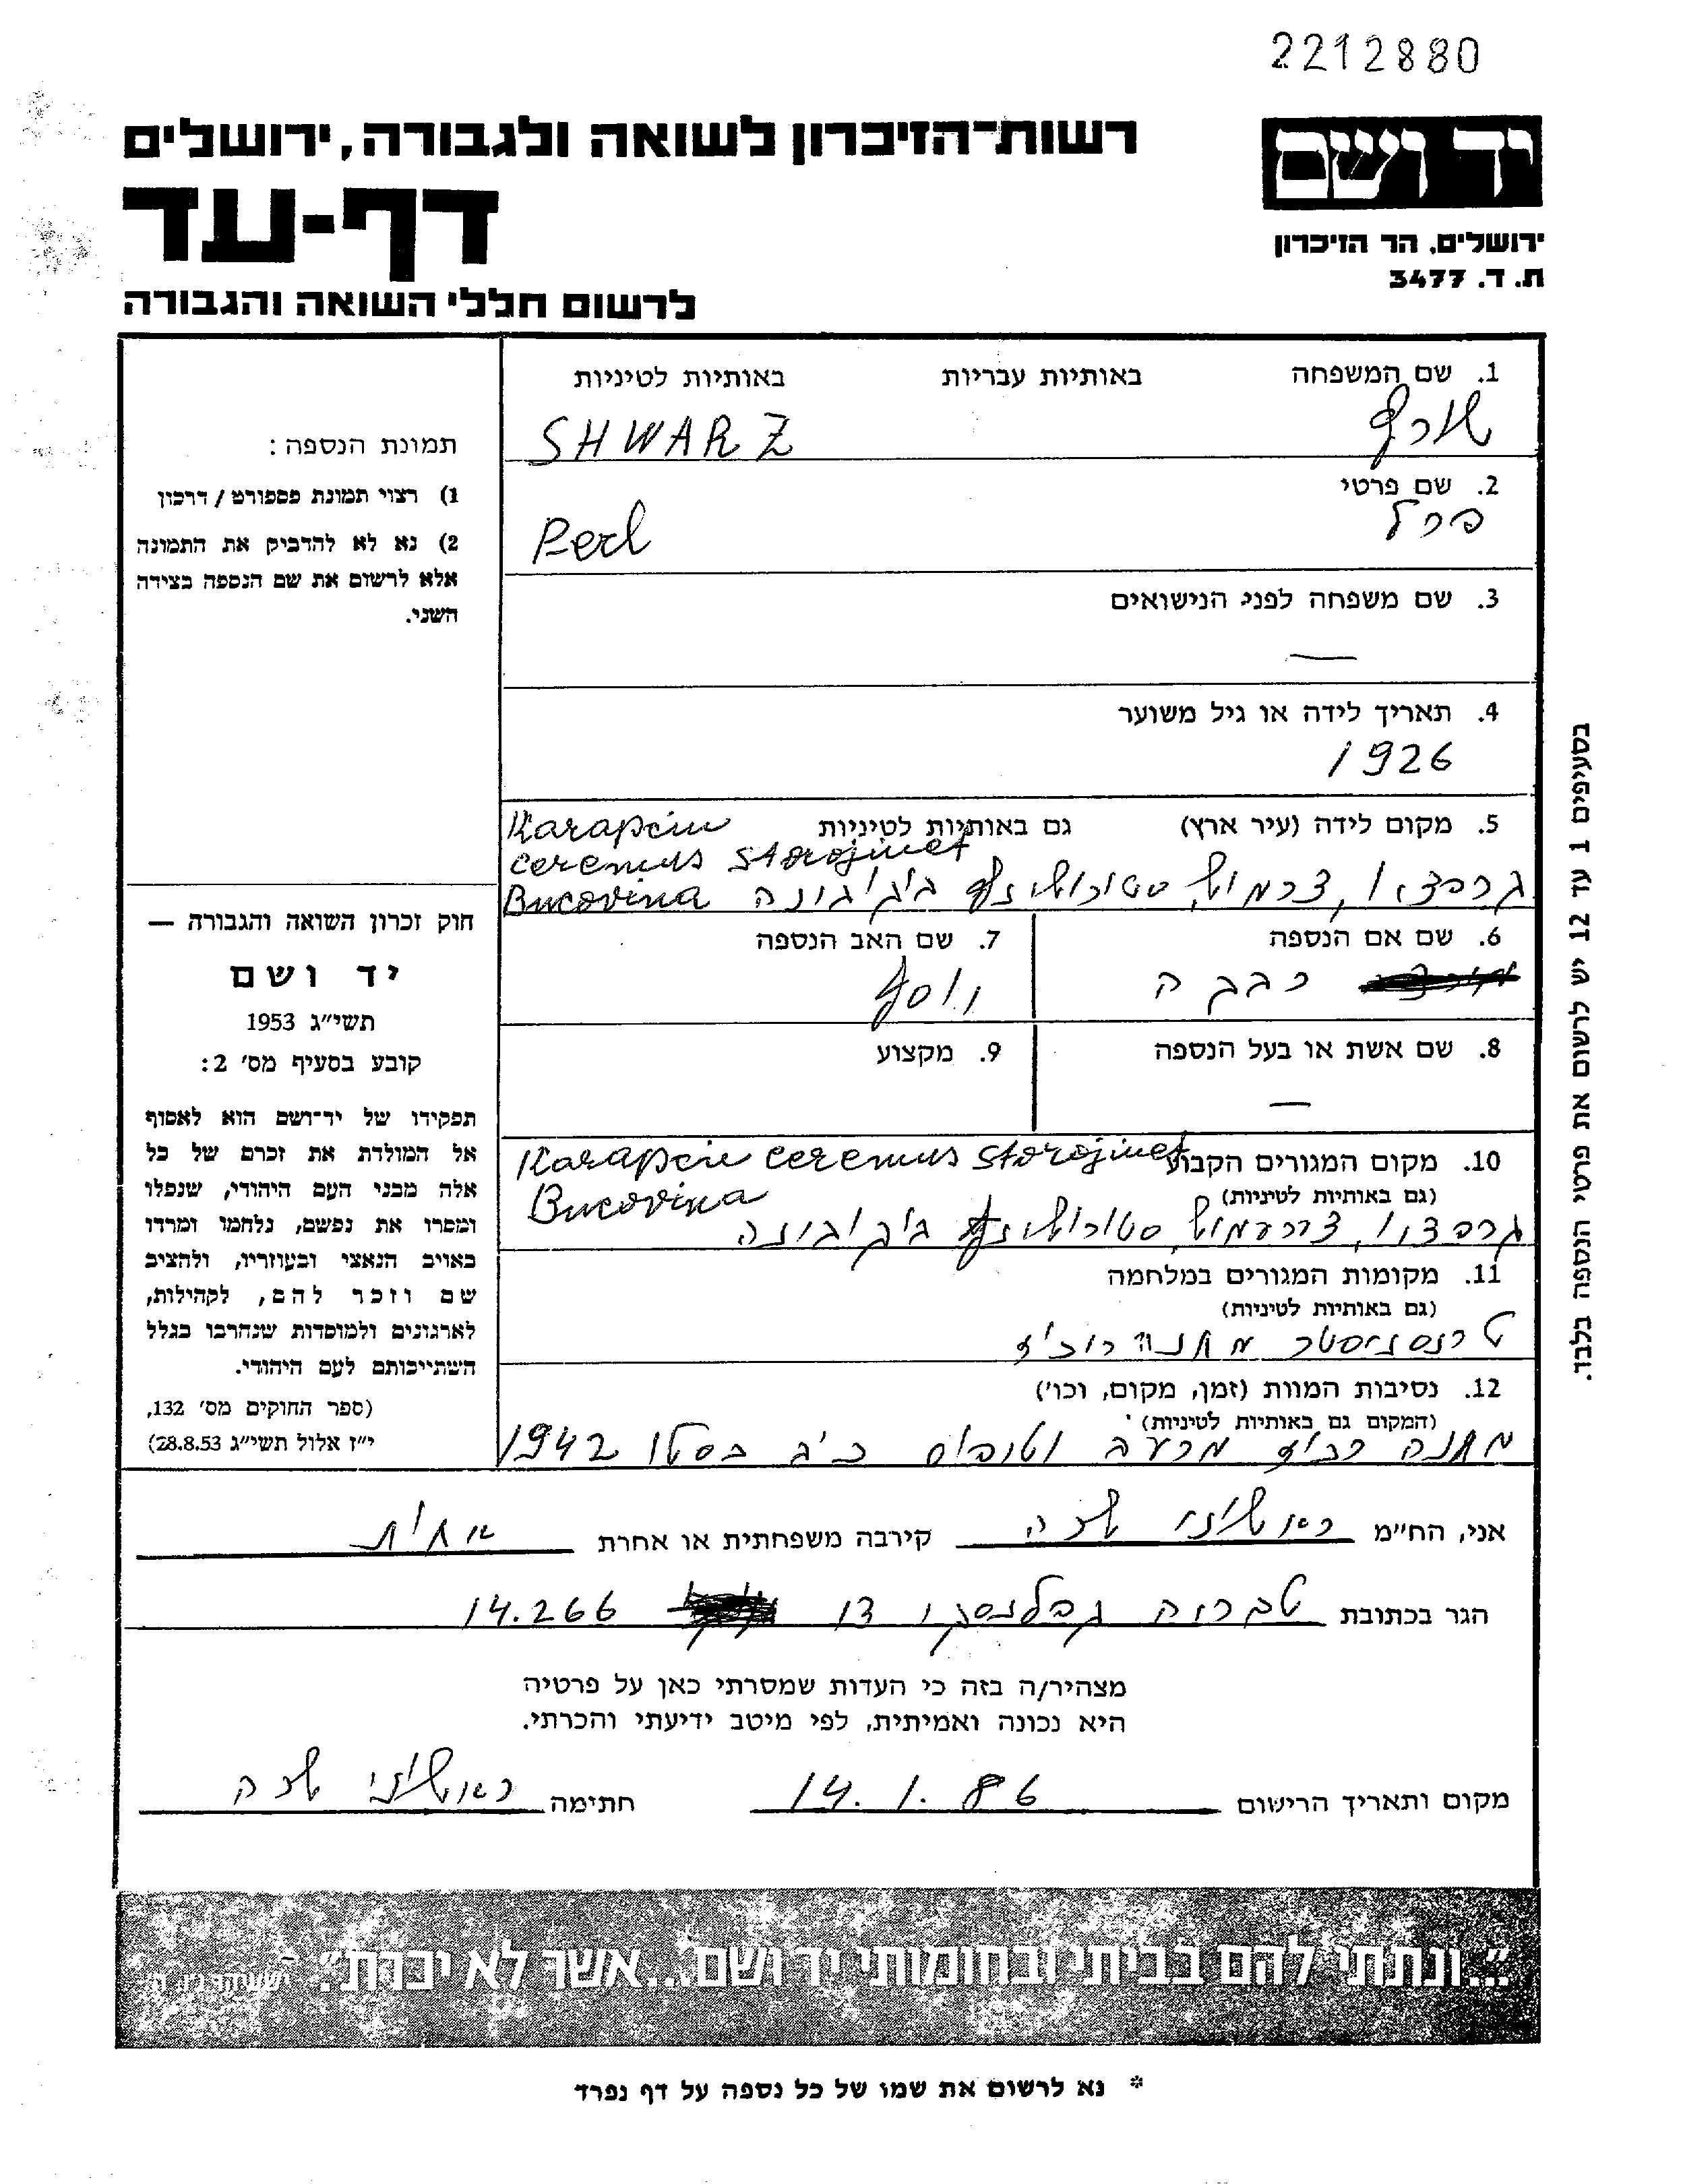 2212880
רשות־הזיכרון לשואה ולגבורה, ירושלים
דף-עד
לרשום חללי השואה והגבורה
יד ושם
ירושלים, הר הזיכרון
ת. ד. 3477
1. שם המשפחה באותיות עבריות באותיות לטיניות
שורץ SHWARZ
2. שם פרטי
פרל Perl
3. שם משפחה לפני הנישואים
—
4. תאריך לידה או גיל משוער
1926
5. מקום לידה (עיר ארץ) גם באותיות לטיניות
Karapciu
ceremus Storojinet
Bucovina
6. שם אם הנספה
רבקה
7. שם האב הנספה
יוסף
8. שם אשת או בעל הנספה
—
9. מקצוע
10. מקום המגורים הקבוע
(גם באותיות לטיניות)
Karapciu ceremus Storojinet
Bucovina
11. מקומות המגורים במלחמה
(גם באותיות לטיניות)
טרנסניסטר מחנה
12. נסיבות המוות (זמן, מקום, וכו')
(המקום גם באותיות לטיניות)
מחנה מרעב וטופוס 1942
תמונת הנספה:
1) רצוי תמונת פספורט / דרכון
2) נא לא להדביק את התמונה
אלא לרשום את שם הנספה בצידה
השני.
חוק זכרון השואה והגבורה —
יד ושם
תשי״ג 1953
קובע בסעיף מס' 2:
תפקידו של יד־ושם הוא לאסוף
אל המולדת את זכרם של כל
אלה מבני העם היהודי, שנפלו
ומסרו את נפשם, נלחמו ומרדו
באויב הנאצי ובעוזריו, ולהציב
שם וזכר להם, לקהילות,
לארגונים ולמוסדות שנחרבו בגלל
השתייכותם לעם היהודי.
(ספר החוקים מס' 132,
י״ז אלול תשי״ג 28.8.53)
בסעיפים 1 עד 12 יש לרשום את פרטי הנספה בלבד.
אני, הח״מ קירבה משפחתית או אחרת אחות
הגר בכתובת טבריה 13 14.266
מצהיר/ה בזה כי העדות שמסרתי כאן על פרטיה
היא נכונה ואמיתית, לפי מיטב ידיעתי והכרתי.
מקום ותאריך הרישום 14.1.86 חתימה
"...ונתתי להם בביתי ובחומותי יד ושם... אשר לא יכרת". ישעיהו נ״ו, ה'
* נא לרשום את שמו של כל נספה על דף נפרד